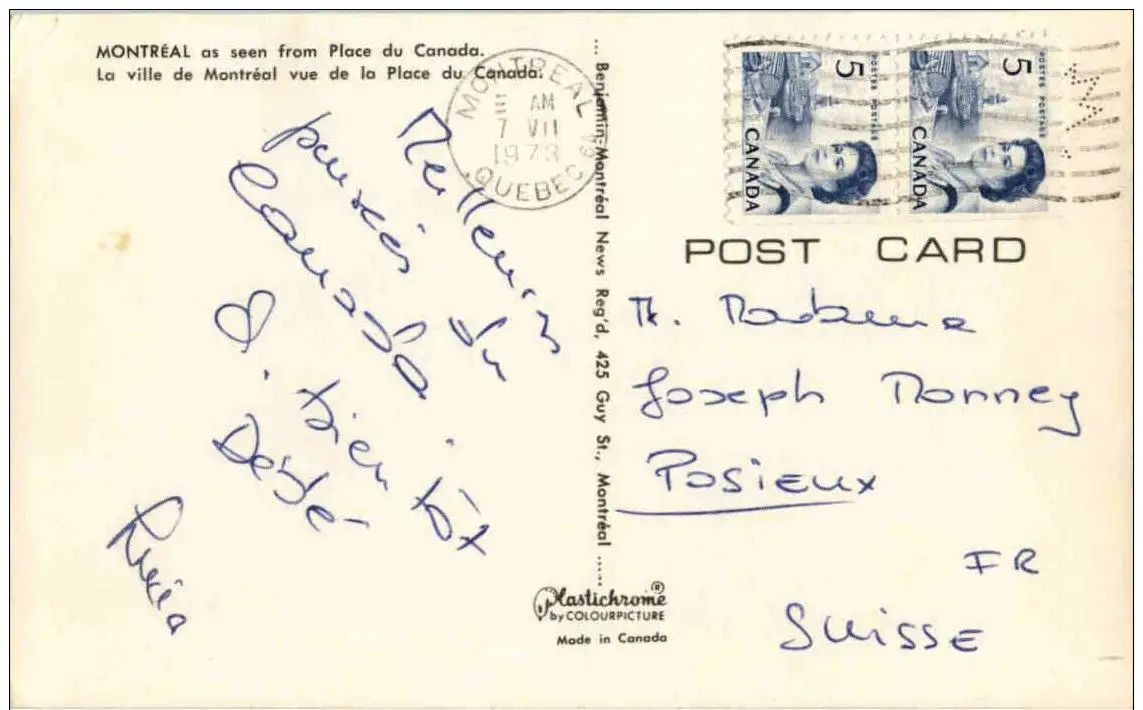 MONTRÉAL as seen from Place du Canada.
La ville de Montréal vue de la Place du Canada.
MONTREAL
AM
7 VII
1973
QUEBEC
Meilleures
pensées du
Canada
bientôt
Désté
... Benjamin-Montréal News Reg'd, 425 Guy St., Montréal .....
Plastichrome ®
by COLOURPICTURE
Made in Canada
5
POSTES POSTAGE
CANADA
5
POSTES POSTAGE
CANADA
POST CARD
M. Madame
Joseph Monney
Posieux
FR
Suisse